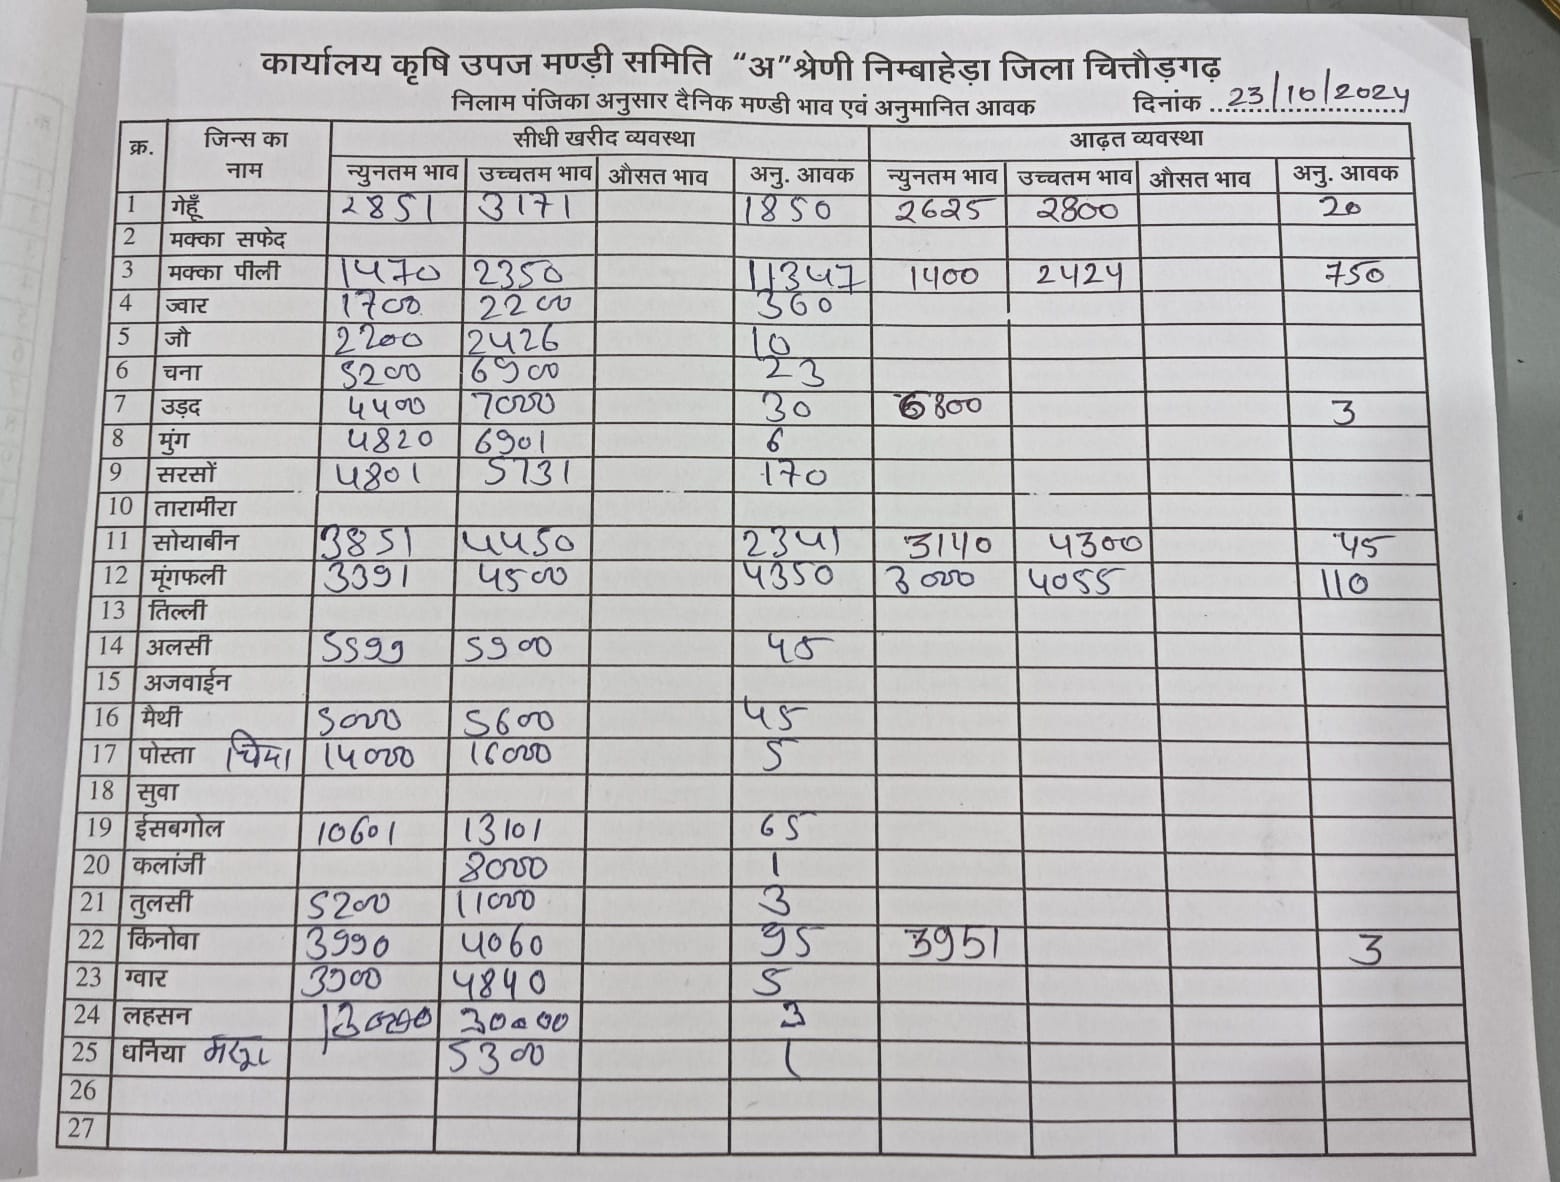 कार्यालय कृषि उपज मण्ड़ी समिति "अ" श्रेणी निम्बाहेड़ा जिला चित्तौड़गढ़
निलाम पंजिका अनुसार दैनिक मण्डी भाव एवं अनुमानित आवक दिनांक 23/10/2024
क्र. जिन्स का नाम सीधी खरीद व्यवस्था आढ़त व्यवस्था
न्युनतम भाव उच्चतम भाव औसत भाव अनु. आवक न्युनतम भाव उच्चतम भाव औसत भाव अनु. आवक
1 गेहूँ 2851 3171 1850 2625 2800 20
2 मक्का सफेद
3 मक्का पीली 1470 2350 11347 1400 2424 750
4 ज्वार 1700 2200 360
5 जौ 2200 2426 10
6 चना 5200 6900 23
7 उड़द 4400 7000 30 6800 3
8 मुंग 4820 6901 6
9 सरसों 4801 5731 170
10 तारामीरा
11 सोयाबीन 3851 4450 2341 3140 4300 45
12 मूंगफली 3391 4500 4350 3000 4055 110
13 तिल्ली
14 अलसी 5599 5900 45
15 अजवाईन
16 मैथी 5000 5600 45
17 पोस्ता चिया 14000 16000 5
18 सुवा
19 ईसबगोल 10601 13101 65
20 कलांजी 8000 1
21 तुलसी 5200 11000 3
22 किनोवा 3990 4060 95 3951 3
23 ग्वार 4840 5
24 लहसन 30000 3
25 धनिया मसूर 5300 1
26
27